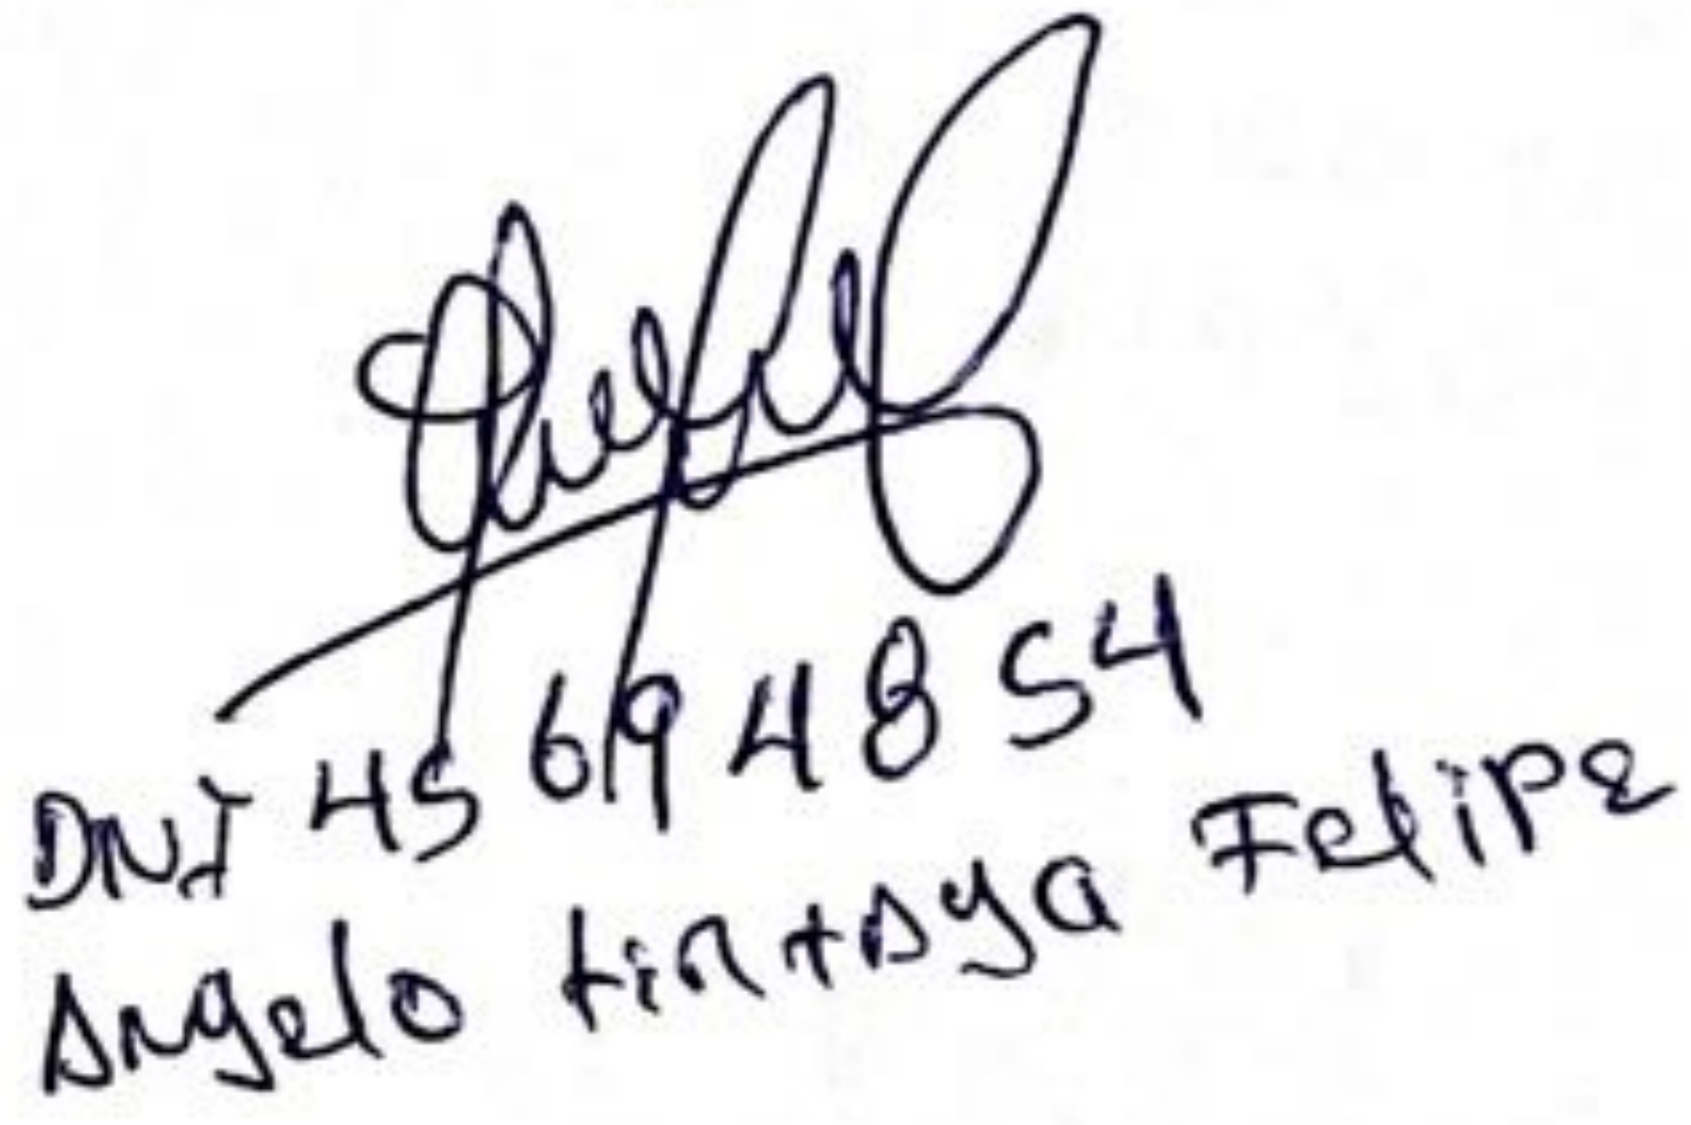 DNI 45694854
Angelo tintaya Felipe